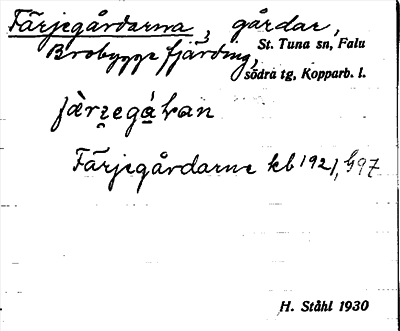 Färjegårdarna, gårdar,
Brobygge fjärding, St. Tuna sn, Falu
södra tg, Kopparb. l.
Färjegårdarne kb 1921, 
H. Ståhl 1930